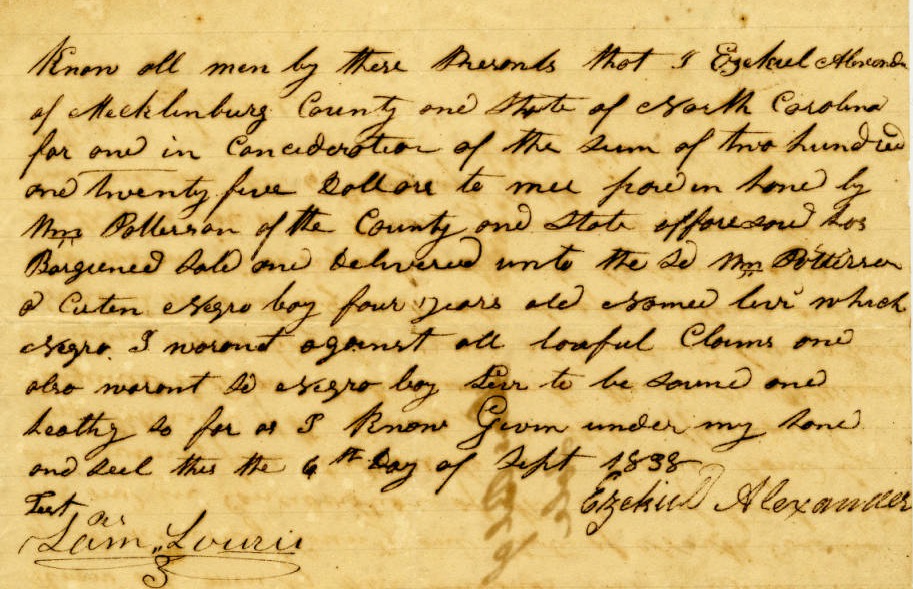 Know all men by these Presents that I Ezekiel Alexander
of Mecklinburg County and State of North Carolina
for and in Concideration of the sum of two hundred
and twenty five Dollars to mee paid in hand by
Wm Patterson of the County and State afforesaid has
Bargened Sold and Delivered unto the Sd Wm Potterson
a Certen Negro boy four years old Named Levi which
Negro I warant against all lawful Claims and
also warant Sd Negro boy Levi to be sound and
healthy so far as I Know Given under my hand
and seel this the 6th Day of Sept 1838
Test Ezekiel Alexander
Sam Lourie